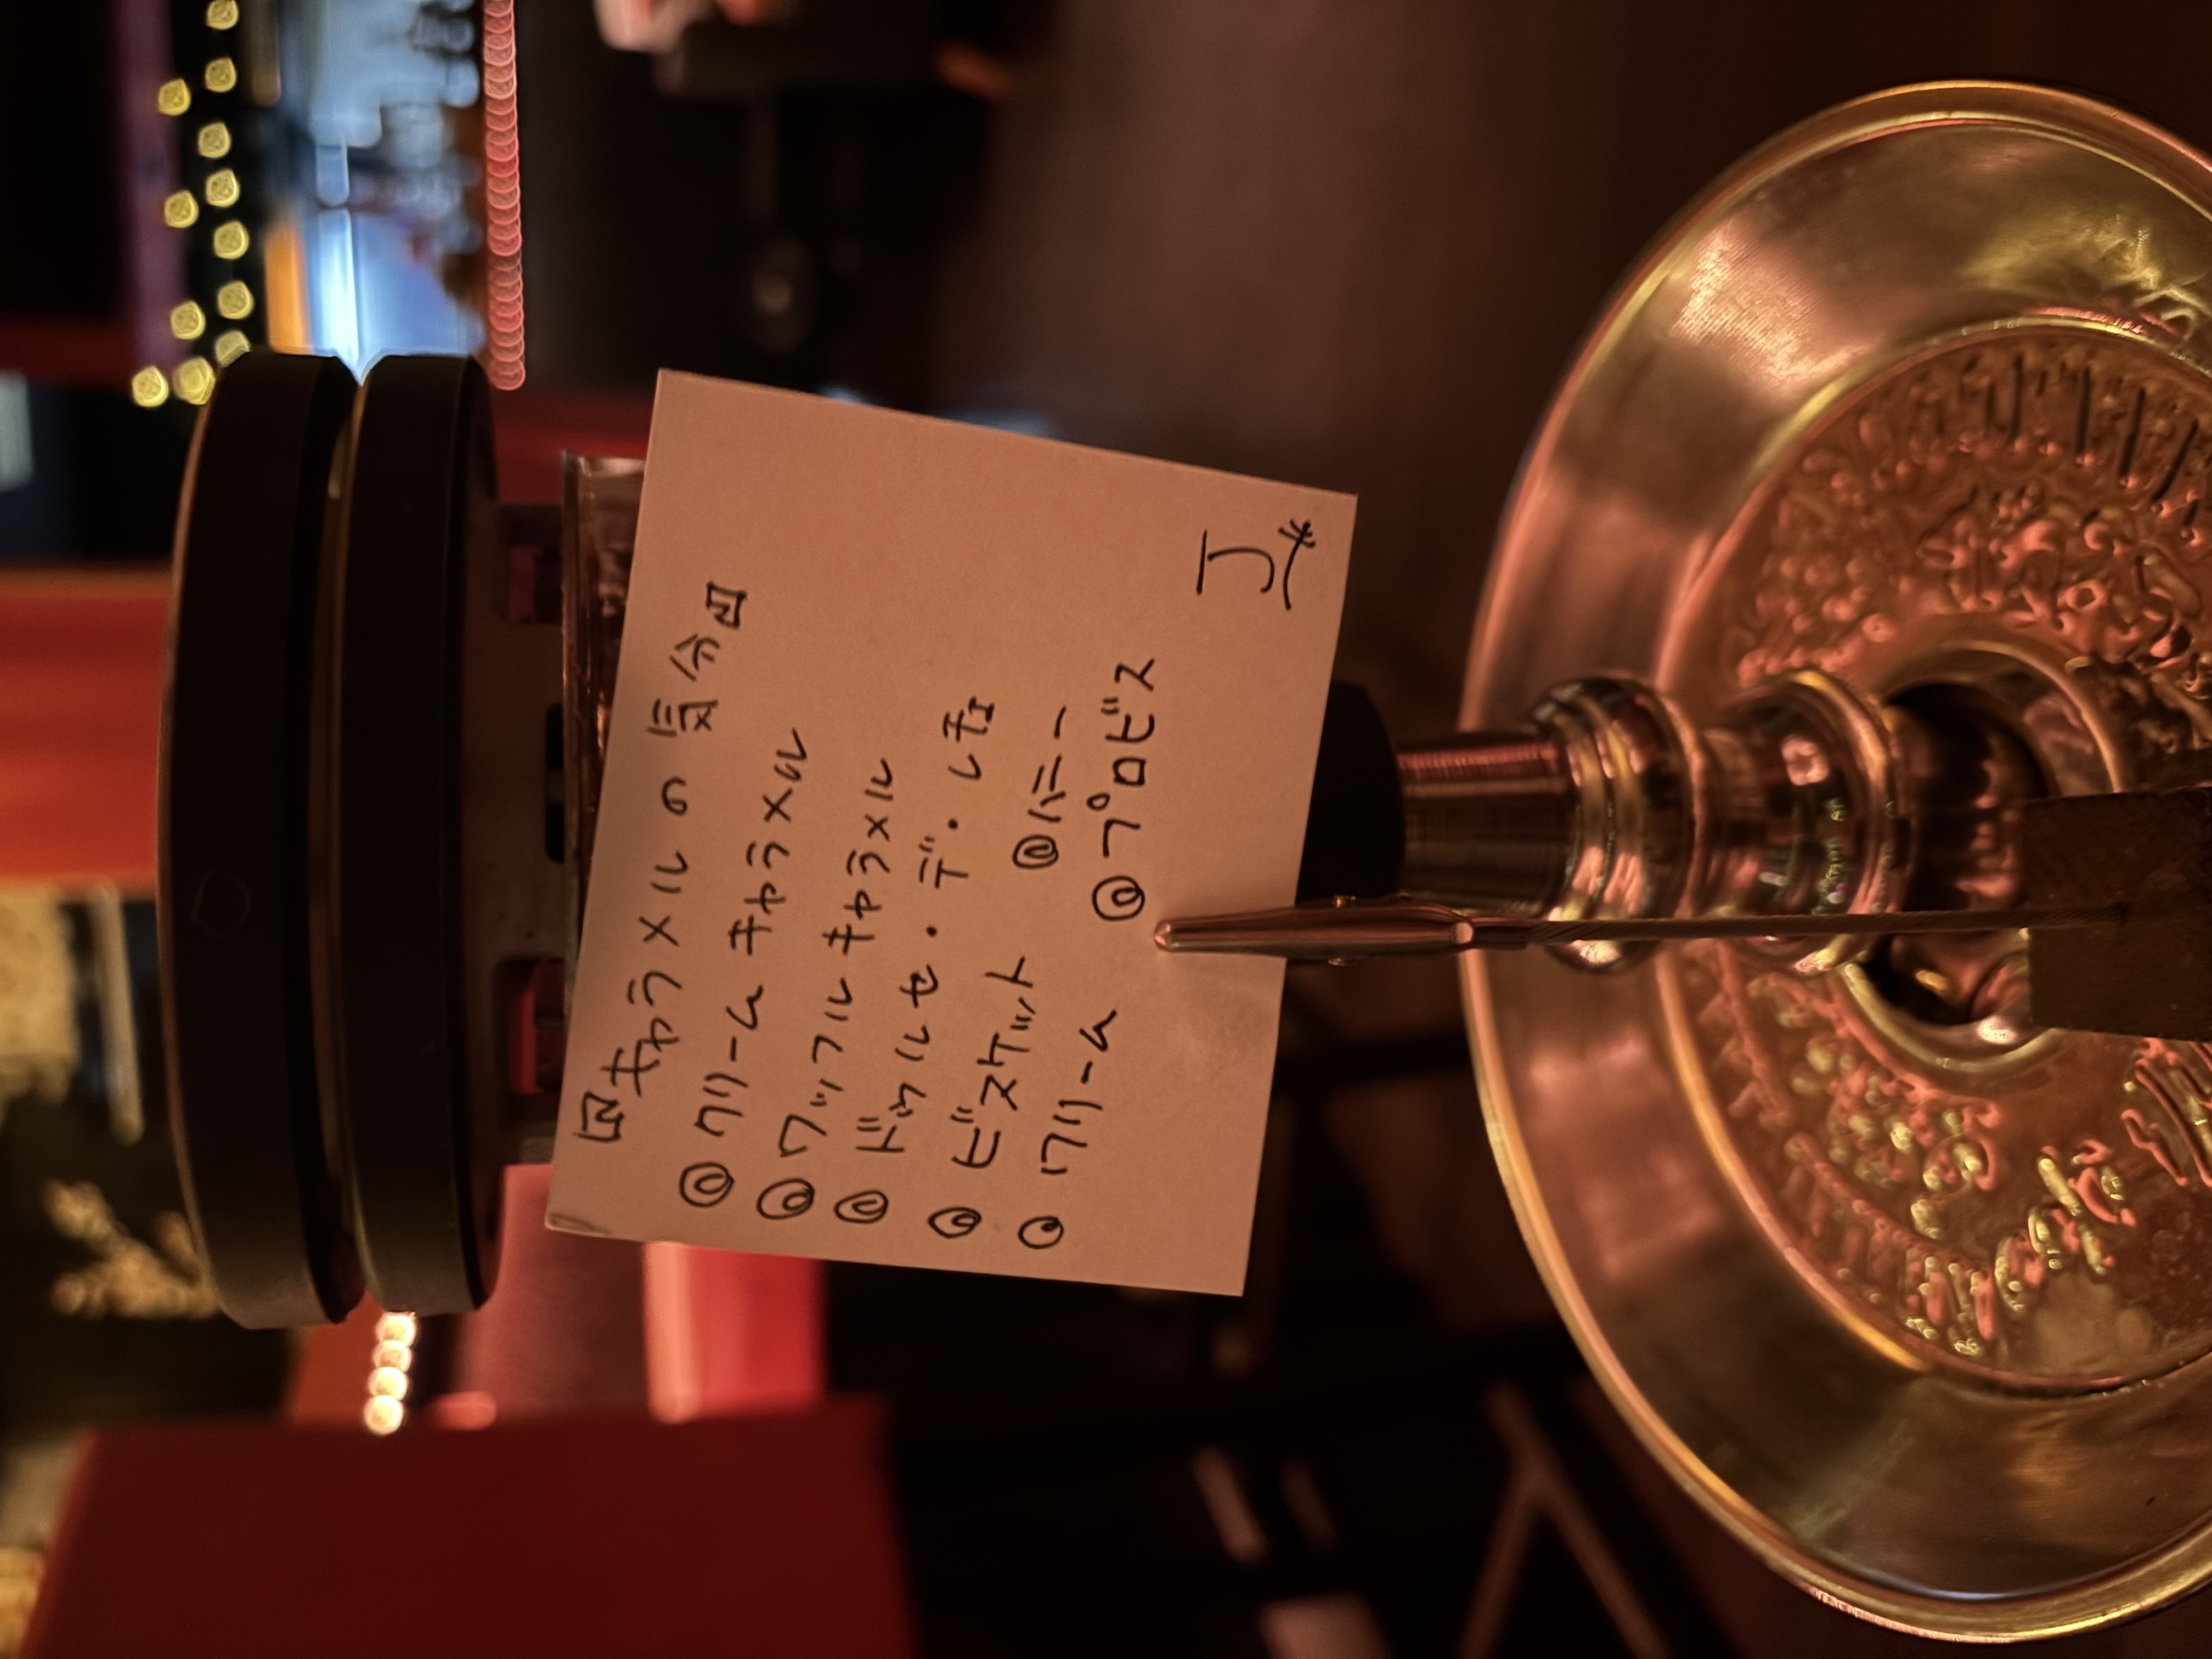 回キャラメルの気分回
◎クリームキャラメル
◎ワッフルキャラメル
◎ドゥルセ・デ・レチェ
◎ビスケット ◎ハニー
◎クリーム ◎プロビス